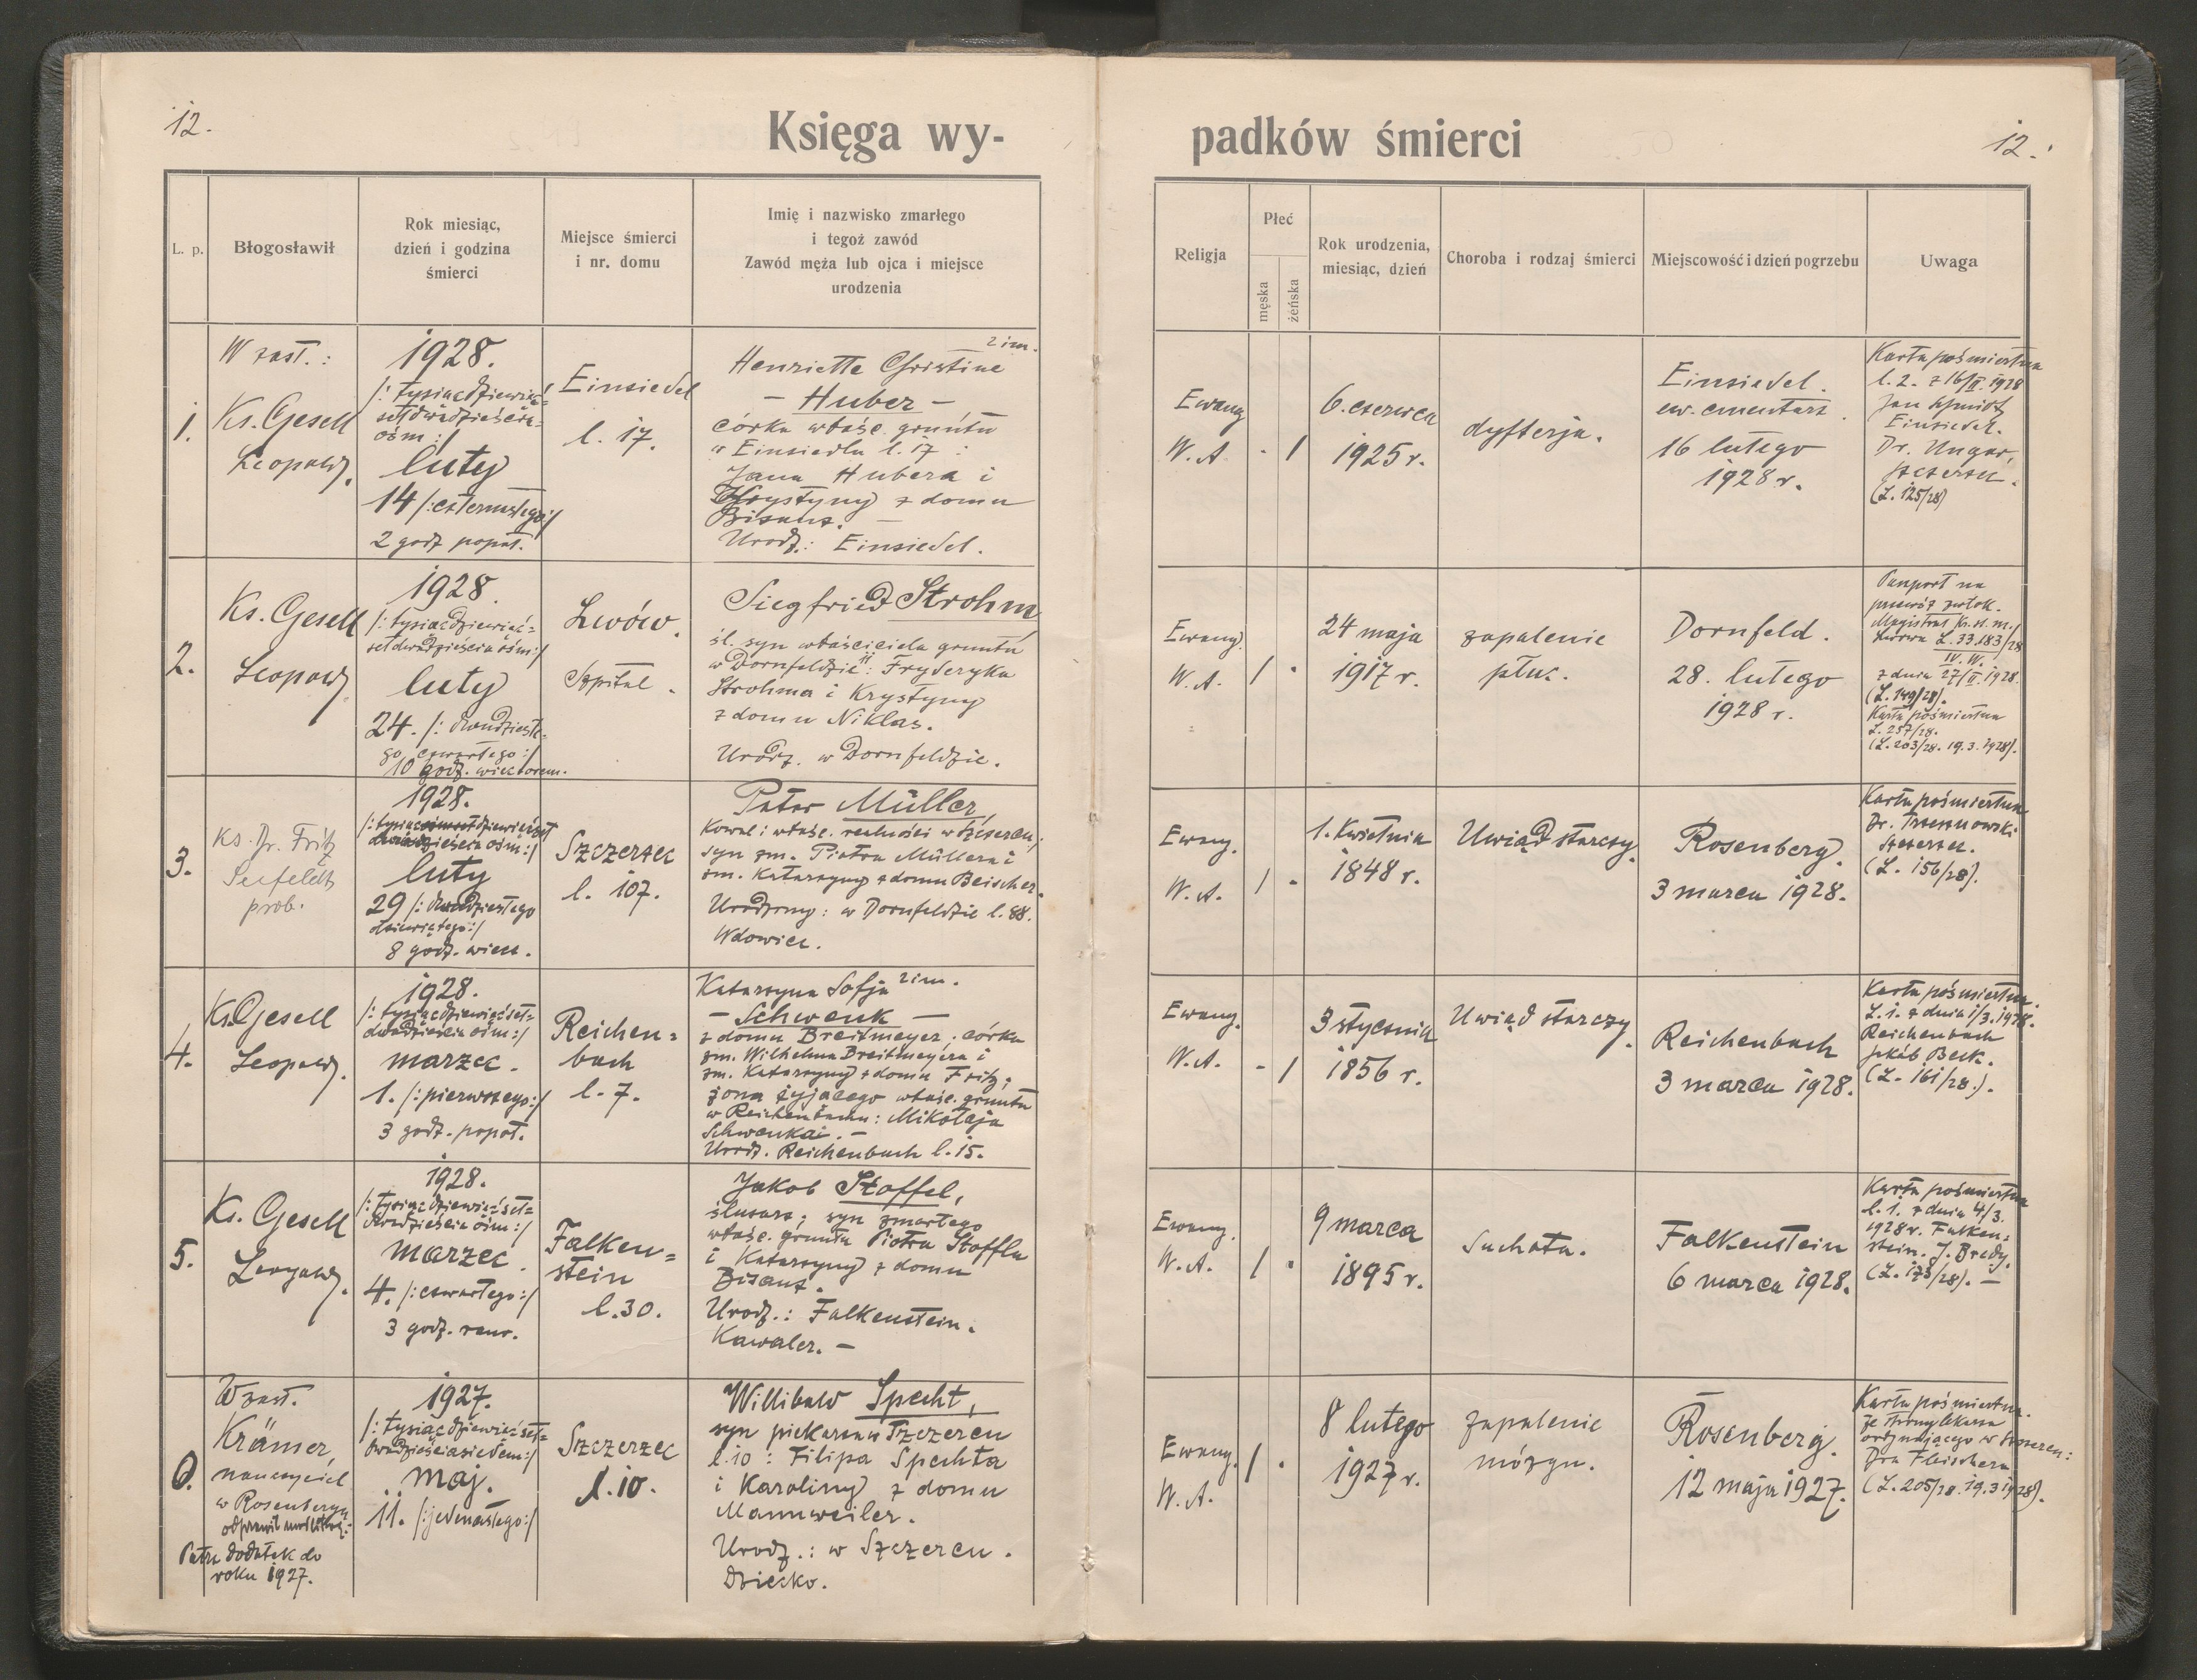 12.
Księga wy-
padków śmierci
12.
L. p.
Błogosławił
Rok miesiąc,
dzień i godzina
śmierci
Miejsce śmierci
i nr. domu
Imię i nazwisko zmarłego
i tegoż zawód
Zawód męża lub ojca i miejsce
urodzenia
Religja
Płeć
męska
żeńska
Rok urodzenia,
miesiąc, dzień
Choroba i rodzaj śmierci
Miejscowość i dzień pogrzebu
Uwaga
1.
W zast.:
Ks. Gesell
Leopold.
1928.
/: tysiąc dziewięć=
setdwadzieścia=
ośm :/
luty
14 /: czternastego :/
2 godz popoł.
Einsiedel
l. 17.
2 im.
Henriette Christine
- Huber -
córka właśc. gruntu
w Einsiedlu l. 17 :
Jana Hubera i
Chrystyny z domu
Bisanz. -
Urodz.: Einsiedel.
Ewang.
W. A.
- 1
6. czerwca
1925 r.
dyfterja.
Einsiedel.
ew. cmentarz.
16 lutego
1928 r.
Karta pośmiertna
l. 2. z 16/II. 1928
Jan Schmidt
Einsiedel.
Dr. Ungar,
Szczerzec.
(L. 125/28)
2.
Ks. Gesell
Leopold.
1928
/: tysiąc dziewięć=
setdwadzieścia ośm :/
luty
24. /: dwudzieste-
go czwartego :/
10 godz. wieczorem.
Lwów.
Szpital.
Siegfried Strohm
śl. syn właściciela gruntu
w Dornfeldzie: Fryderyka
Strohma i Krystyny
z domu Niklas.
Urodz. w Dornfeldzie.
Ewang.
W. A.
1 -
24 maja
1917 r.
zapalenie
płuc.
Dornfeld.
28. lutego
1928 r.
Paszport na
przewóz zwłok.
Magistrat kr. st. m.
Lwowa L. 33.183/28
IV. W.
z dnia 27/II. 1928.
(L. 149/28).
Karta pośmiertna
L. 257/28.
(L. 203/28. 19. 3. 1928).
3.
Ks. Dr. Fritz
Seefeldt
prob.
1928.
dwadzieścia ośm :/
luty
29 /: dwudziestego
dziewiątego :/
8 godz. wiecz.
Szczerzec
l. 107.
Peter Müller,
Kowal i właśc. realności w Szczercu;
syn zm. Piotra Müllera i
zm. Katarzyny z domu Beischer.
Urodzony: w Dornfeldzie l. 88.
Wdowiec.
Ewang.
W. A.
1 -
1. Kwietnia
1848 r.
Uwiąd starczy.
Rosenberg.
3 marca 1928.
Karta pośmiertna
Szczerzec.
(L. 156/28).
4.
Ks. Gesell
Leopold.
1928.
/: tysiąc dziewięćset=
dwadzieścia ośm :/
marzec.
1. /: pierwszego :/
3 godz. popoł.
Reichen=
bach
l. 7.
Katarzyna Sofja 2 im.
- Schwenk -
z domu Breitmeyer, córka
zm. Wilhelma Breitmeyera i
zm. Katarzyny z domu Fritz;
żona żyjącego właśc. gruntu
w Reichenbachu: Mikołaja
Schwenka. -
Urodz. Reichenbach l. 15.
Ewang.
W. A.
- 1
3 stycznia
1856 r.
Uwiąd starczy.
Reichenbach
3 marca 1928.
Karta pośmiertna.
L. 1. z dnia 1/3. 1928.
Reichenbach
Jakób Beck.
(L. 161/28.).
5.
Ks. Gesell
Leopold.
1928.
/: tysiąc dziewięćset=
dwadzieścia ośm :/
marzec.
4. /: czwartego :/
3 godz. rano.
Falken=
stein
l. 30.
Jakob Stoffel,
ślusarz; syn zmarłego
właśc. gruntu Piotra Stoffla
i Katarzyny z domu
Bisanz.
Urodz.: Falkenstein.
Kawaler. -
Ewang.
W. A.
1 -
9 marca
1895 r.
Suchota.
Falkenstein
6 marca 1928.
Karta pośmiertna
l. 1. z dnia 4/3.
1928 r. Falken=
stein. J. Bredy.
(L. 173/28). -
W zast.
Krämer,
nauczyciel
w Rosenbergu
odprawił modlitwę.
Patrz dodatek do
roku 1927.
1927.
/: tysiąc dziewięćset=
dwadzieściasiedem :/
maj.
11. /: jedenastego :/
Szczerzec
l. 10.
Willibald Specht,
syn piekarza w Szczercu
l. 10 : Filipa Spechta
i Karoliny z domu
Mannweiler.
Urodz.: w Szczercu.
Dziecko.
Ewang.
W. A.
1 -
8 lutego
1927 r.
zapalenie
mózgu.
Rosenberg.
12 maja 1927.
Karta pośmiertna.
ze strony lekarza
ordynującego w Szczercu:
Dra Fleischera
(L. 205/28. 19. 3 1928).